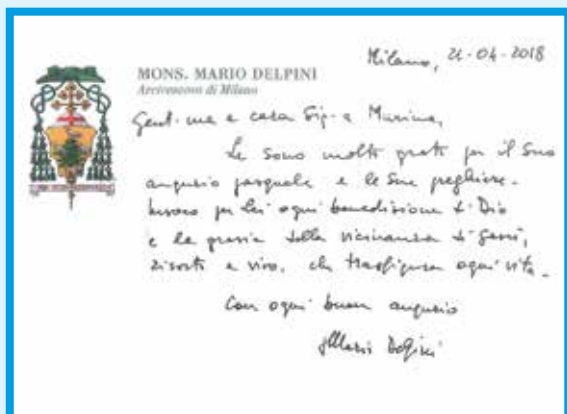 MONS. MARIO DELPINI
Arcivescovo di Milano
Milano, 21-04-2018
Gent.ma e cara Sig.a Marina,
Le sono molto grato per il Suo
augurio pasquale e le Sue preghiere.
Invoco per lei ogni benedizione di Dio
e la grazia della vicinanza di Gesù,
risorto e vivo, che trasfigura ogni vita.
Con ogni buon augurio
+ Mario Delpini